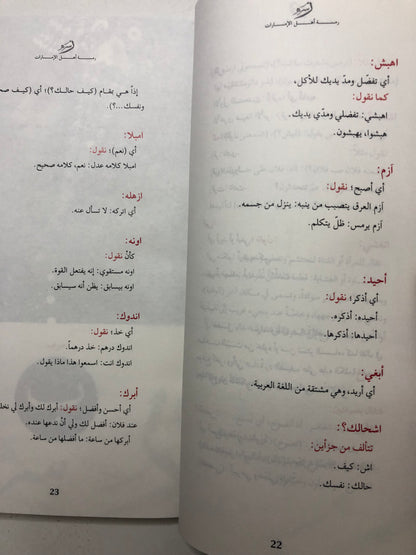 رمسة أهل الإمارات
اهبش:
أي تفضّل ومدّ يديك للأكل،
كما نقول:
اهبشي: تفضلي ومدّي يديك.
هبشوا، يهبشون.
آزم:
أي أصبح؛ نقول:
آزم العرق يتصبب من ينبه: ينزل من جسمه.
آزم يرمس: ظلّ يتكلم.
أحيد:
أي أذكر؛ نقول:
أحيده: أذكره.
أحيدها: أذكرها.
أبغي:
أي أريد، وهي مشتقة من اللغة العربية.
اشحالك؟:
تتألف من جزأين:
اش: كيف.
حالك: نفسك.
22
رمسة أهل الإمارات
إذاً هي بمقام (كيف حالك؟)؛ أي (كيف
ونفسك...؟).
امبلا:
أي (نعم)؛ نقول:
امبلا كلامه عدل: نعم، كلامه صحيح.
ازهله:
أي اتركه: لا تسأل عنه.
اونه:
كأنّ نقول:
اونه مستقوي: إنه يفتعل القوة.
اونه بيسابق: يظن أنه سيسابق.
اندوك:
أي خذ؛ نقول:
اندوك درهم: خذ درهماً.
اندوك انت: اسمعوا هذا ماذا يقول.
أبرك:
أي أحسن وأفضل؛ نقول: أبرك لك وأبرك لي
عند فلان: أفضل لك ولي أنْ ندعها عنده.
أبركها من ساعة: ما أفضلها من ساعة.
23